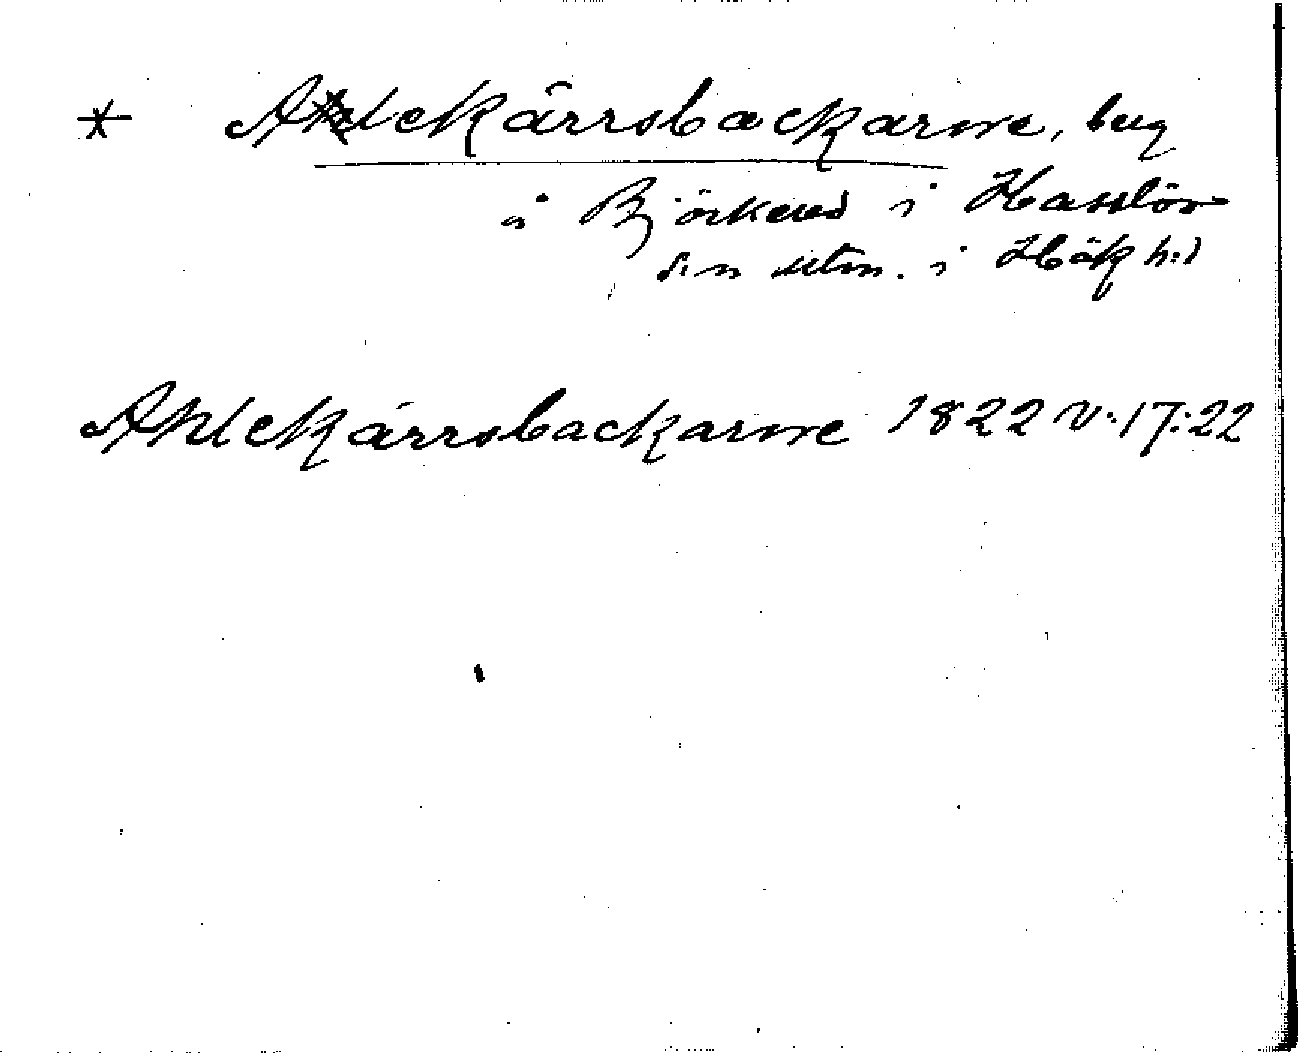 * Alekärrsbackarne, beg
å Björkered i Hasslöv
s:n utm. i Hök h:d
Ahlekärrsbackarne 1822 V:17:22